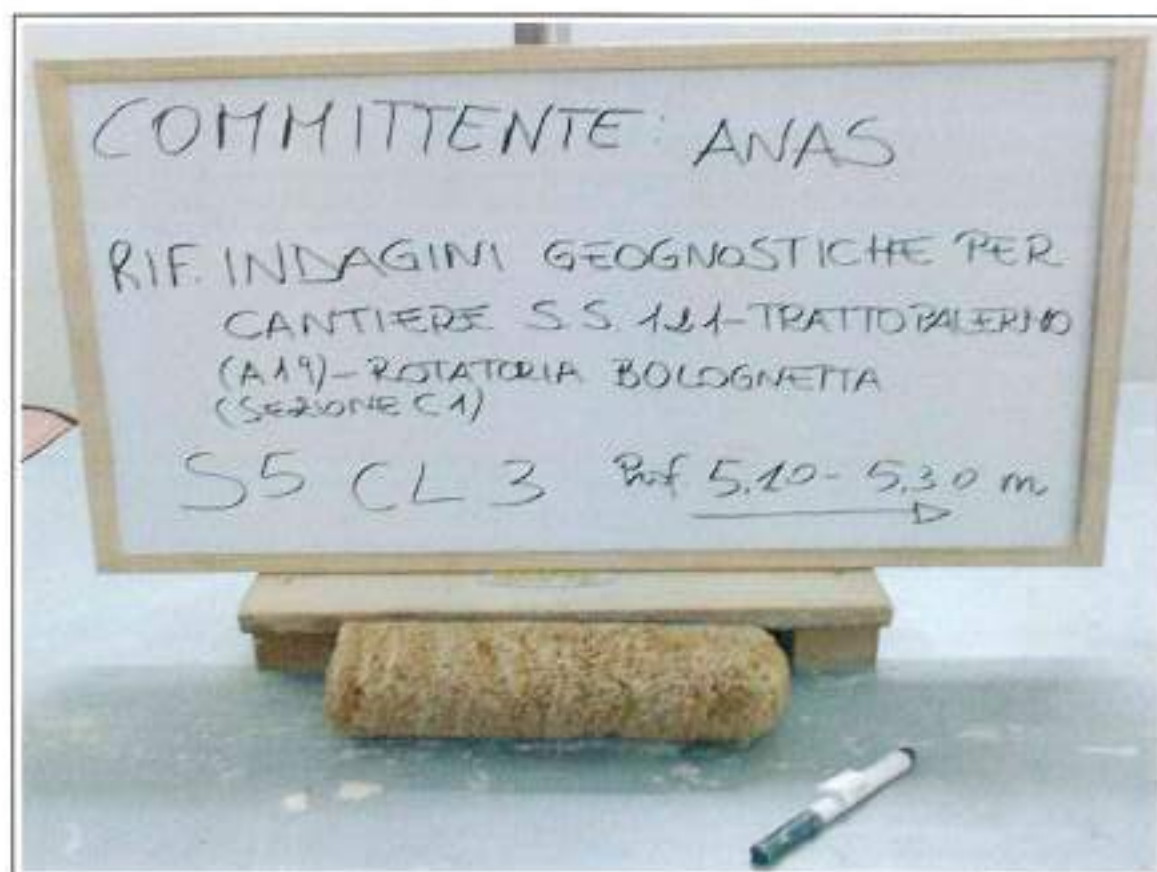 COMMITTENTE: ANAS
RIF. INDAGINI GEOGNOSTICHE PER
CANTIERE S.S. 121-TRATTO PALERMO
(A19)-ROTATORIA BOLOGNETTA
(SEZIONE C1)
S5 CL 3 Prof 5.10-5.30 m